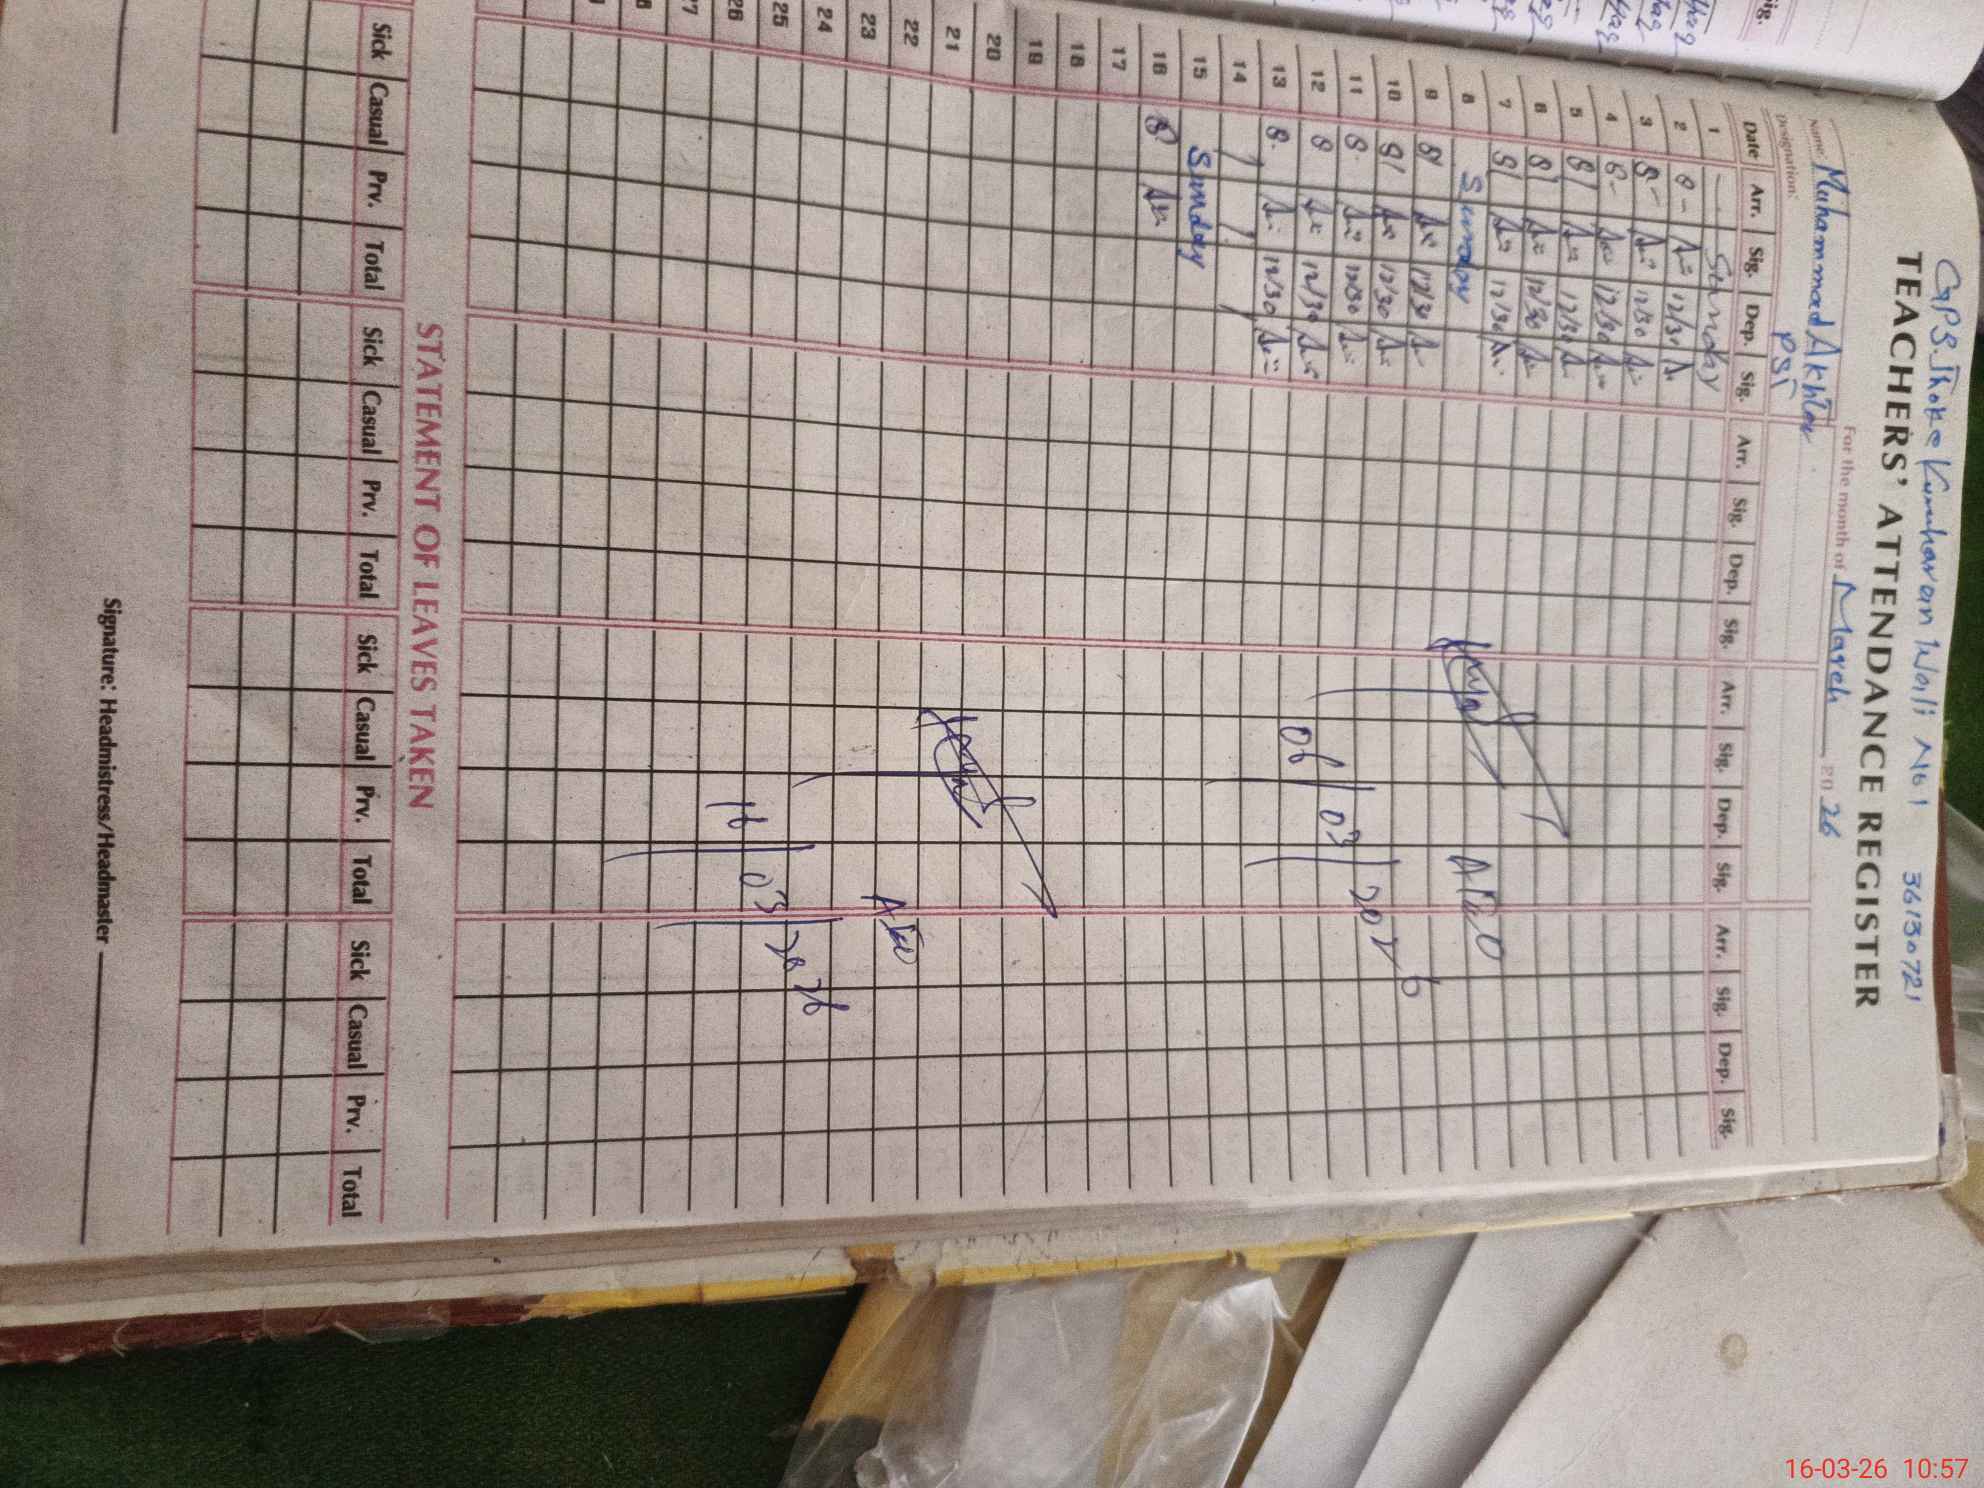 GPS Thoke Kumharan Wali No 1 36130721
TEACHERS' ATTENDANCE REGISTER
For the month of March 2026
Name Muhammad Akhtar
Designation: PST
Date Arr. Sig. Dep. Sig. Arr. Sig. Dep. Sig. Arr. Sig. Dep. Sig. Arr. Sig. Dep. Sig.
1 Sunday
2 8 12/30
3 8 12/30
4 8 12/30
5 8 12/30
6 8 12/30
7 8 12/30
8 Sunday
9 8 12/30
10 8 12/30
11 8 12/30
12 8 12/30
13 8 12/30
14
15 Sunday
16 8
17
18
19
20
21
22
23
24
25
26
27
AEO
06/03/2026
AEO
16/03/2026
STATEMENT OF LEAVES TAKEN
Sick Casual Prv. Total Sick Casual Prv. Total Sick Casual Prv. Total Sick Casual Prv. Total
Signature: Headmistress/Headmaster
Sig.
16-03-26 10:57